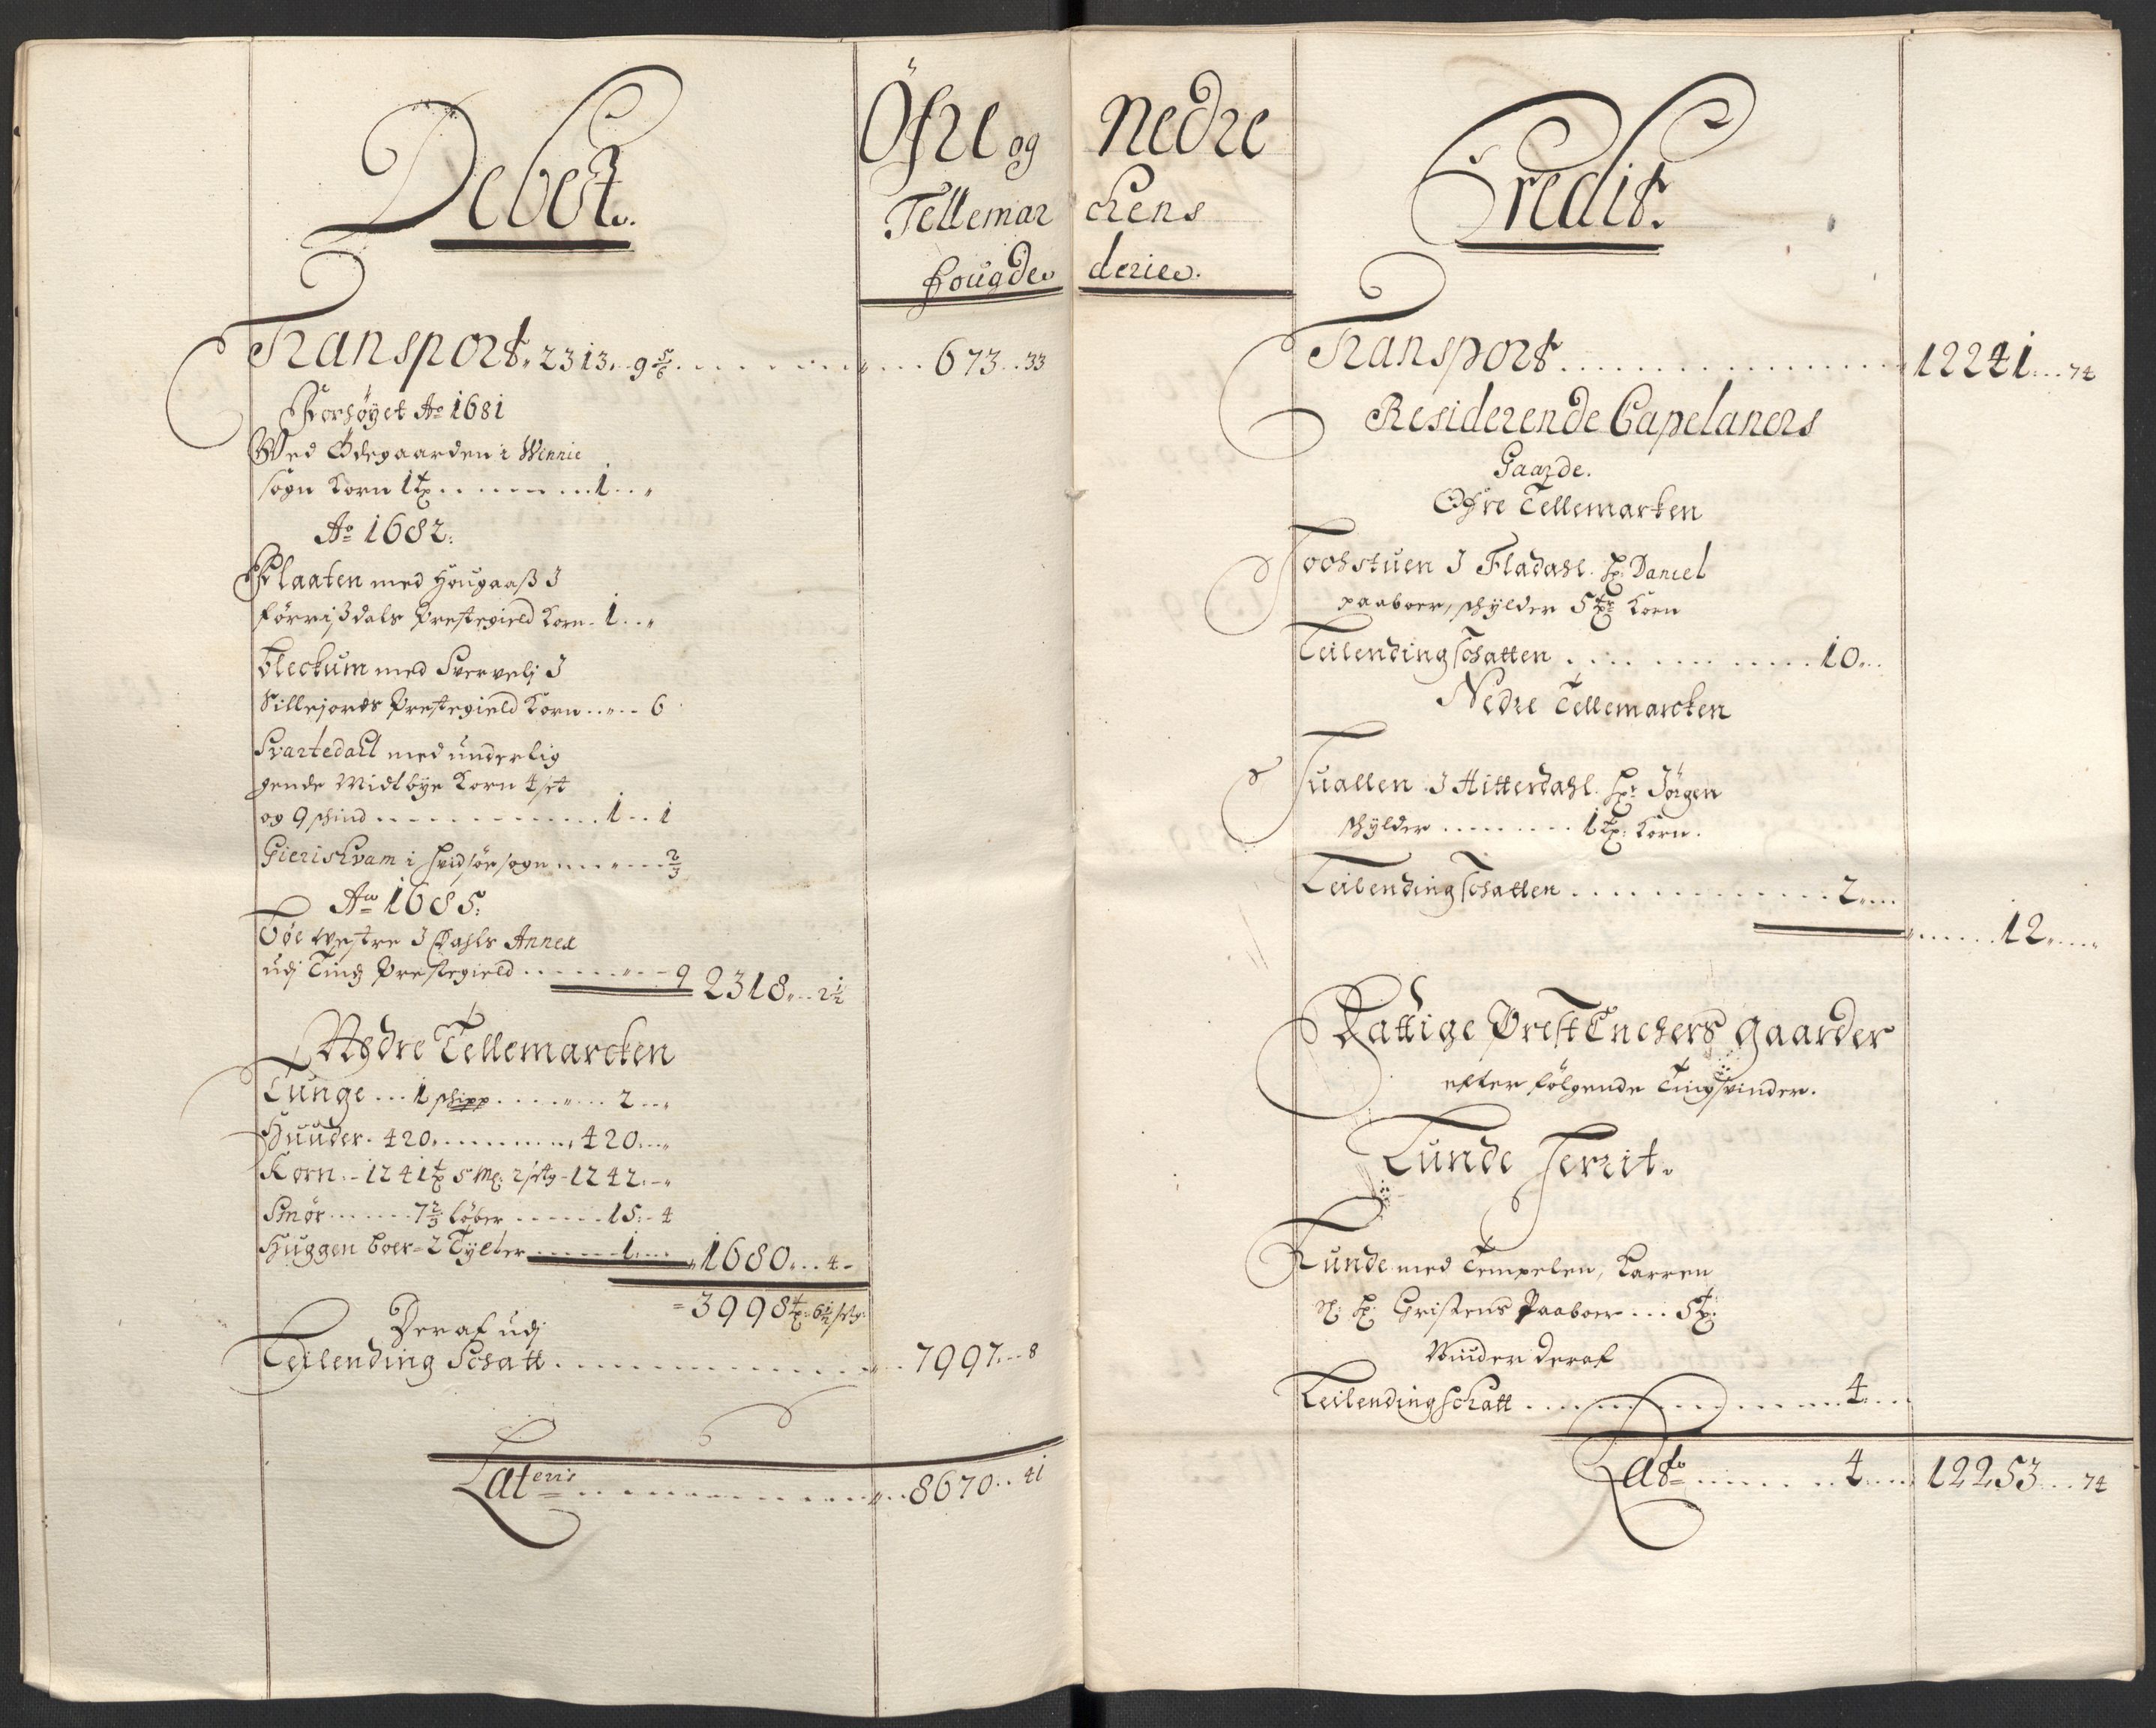 Debet.
Öfre og Nedre
Tellemarchens
fougderie.
Credit.
Transport. 2313. 9 5/6 673 33
Forhöyet Ao 1681
Ved Ödegaarden i Winnie
sogn Korn 1 t 1
Ao 1682.
Flaaten med Hougaaß I
förrißdals Præstegield Korn 1
Bleckum med I
Sillejords Præstegield Korn 6
Svartedall med underlig
gende Midtbye Korn 4 set
og 9 schind 1 1
Gierishvam i Hvidsöe sogn 2/3
Ao 1685.
Böe westre I Dahls Annex
udj Tinds Præstegield 9 2318 2 1/2
Nedre Tellemarcken
Tunge 1 schipp 2
Huuder 420 420
Korn 1241 t 5 2 1242
Smör 7 2/3 löber 15 4
Huggen boer 2 Tylter 1 1680 4
3998 t 6 1/2
Deraf udj
Leilending Schatt 7997 8
Lateris 8670 41
Transport 12241 74
Residerende Capelaners
Gaarde.
Öfre Tellemarken
I Fladahl. Hr: Daniel
paaboer, schylder 5 Korn
Leilending schatten 10
Nedre Tellemarcken
Tuallen I Hitterdahl. Hr: Jörgen
schylder 1 t: Korn.
Leilending schatten 2
12
Fattige Præst Enchers gaarder
efter fölgende Tingsvinder.
Lunde Territ.
Lunde med Tempelen, Karren
Sl: Hr: Christens Paaboer 5 t:
Vinder deraf
Leilending schatt 4
Lato 4 12253 74